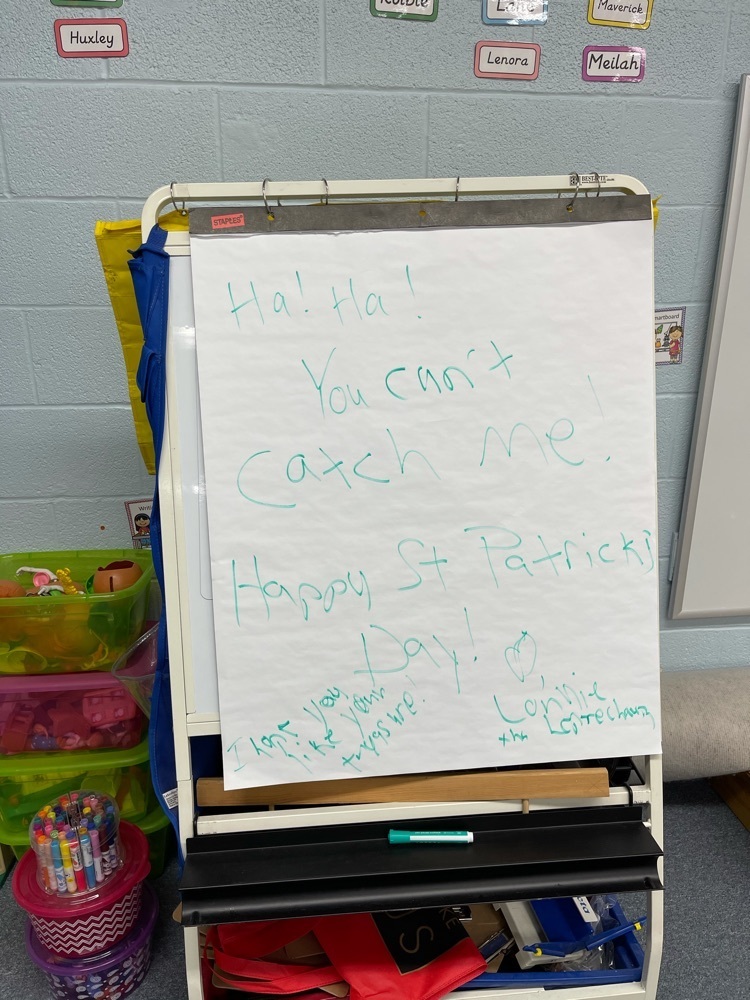 Huxley
Lane
Maverick
Lenora
Meilah
STAPLES
Ha! Ha!
You can't
catch me!
Happy St Patricks
Day!
I hope you
like your
treasure!
Lonnie
the Leprechaun